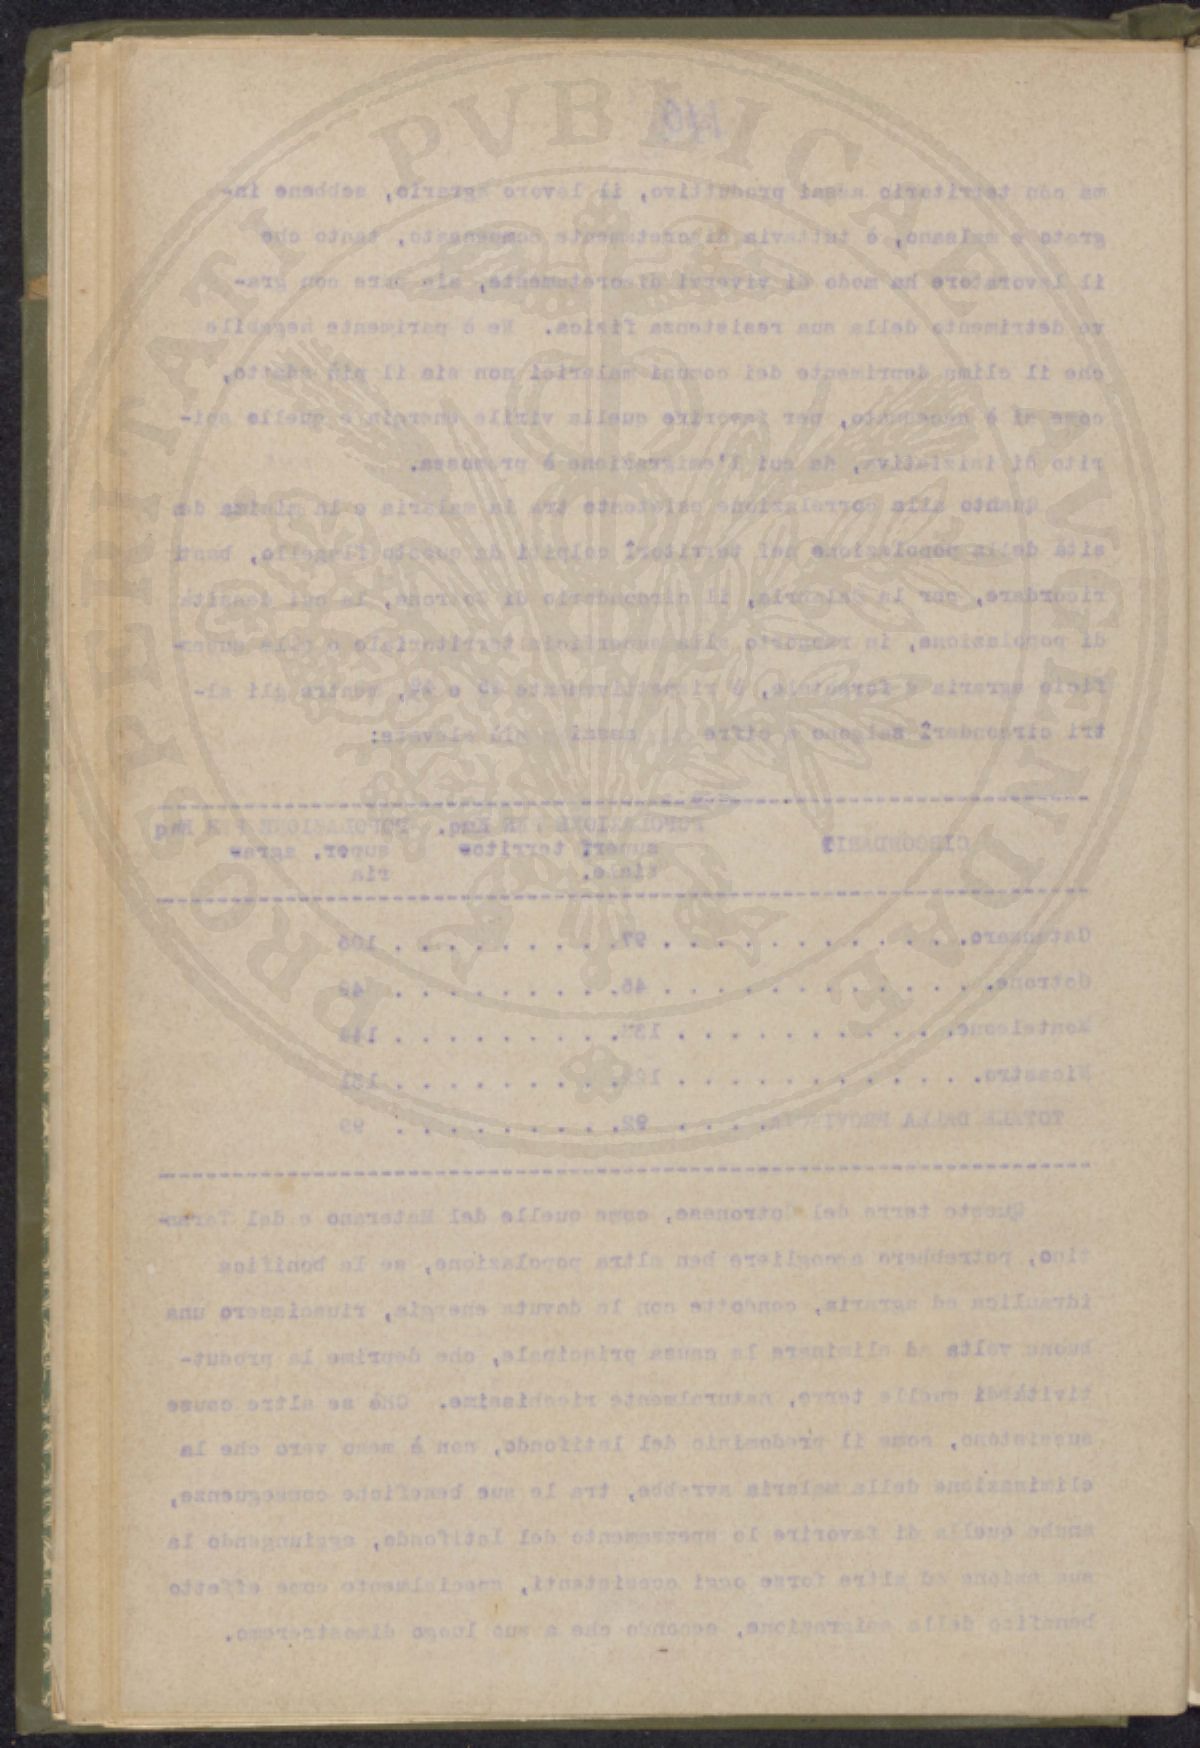 140
ma con territorio assai produttivo, il lavoro agrario, sebbene in-
grato e malsano, è tuttavia discretamente compensato, tanto che
il lavoratore ha modo di vivervi discretamente, sia pure con gra-
ve detrimento della sua resistenza fisica. Ne è parimente negabile
che il clima deprimente dei comuni malarici non sia il più adatto,
come si è accennato, per favorire quella virile energia e quello spi-
rito di iniziativa, da cui l'emigrazione è promossa.
Quanto alla correlazione esistente tra la malaria e la minima den
sità della popolazione nei territorî colpiti da questo flagello, basti
ricordare, per la Calabria, il circondario di Cotrone, la cui densità
di popolazione, in rapporto alla superficie territoriale o alla super-
ficie agraria e forestale, è rispettivamente 45 e 49, mentre gli al-
tri circondarî salgono a cifre assai più elevate:
CIRCONDARII POPOLAZIONE PER Kmq. POPOLAZIONE PER Kmq
superf. territo= super. agra=
riale. ria
Catanzaro. . . . . . . . . . . . 97. . . . . . . . . . 106
Cotrone. . . . . . . . . . . . . 45. . . . . . . . . . 49
Monteleone. . . . . . . . . . . . . . . . . . . .
Nicastro. . . . . . . . . . . . . . . . . . . . 131
TOTALE DALLA PROVINCIA. . . . . 92. . . . . . . . . . 99
Queste terre del Cotronese, come quelle del Materano e del Taran-
tino, potrebbero accogliere ben altra popolazione, se le bonifica
idraulica ed agraria, condotte con la dovuta energia, riuscissero una
buona volta ad eliminare la causa principale, che deprime la produt-
tivitàdi quelle terre, naturalmente ricchissime. Chè se altre cause
sussistono, come il predominio del latifondo, non è meno vero che la
eliminazione della malaria avrebbe, tra le sue benefiche conseguenze,
anche quella di favorire lo spezzamento del latifondo, aggiungendo la
sua azione ad altre forze oggi coesistenti, specialmente come effetto
benefico della emigrazione, secondo che a suo luogo dimostreremo.
PROSPERITATI PVBLICAE AVGENDAE